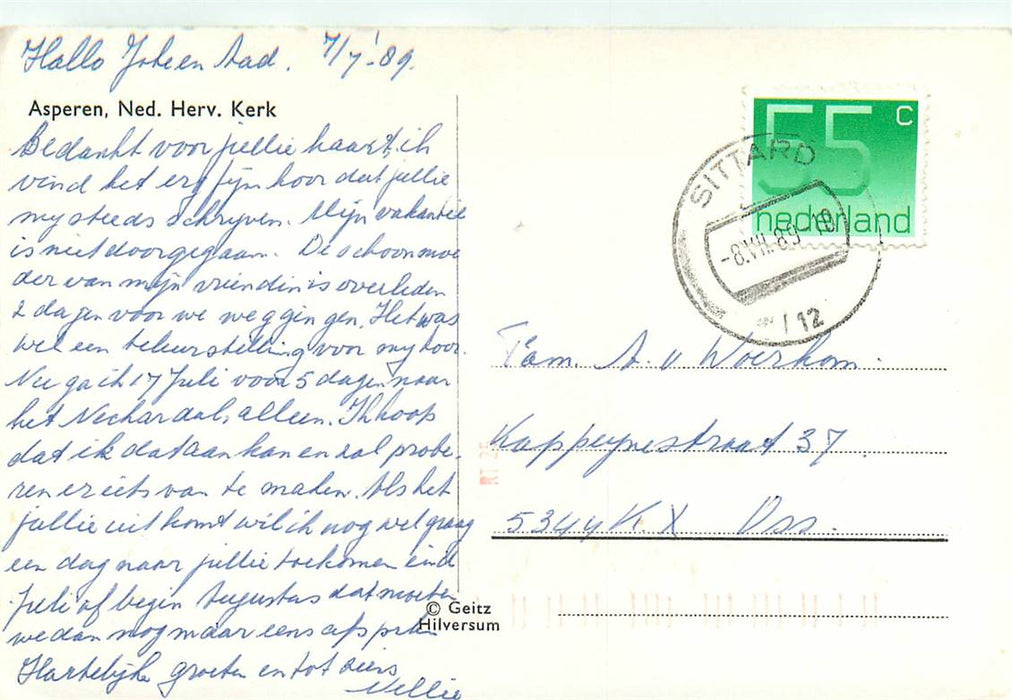 Hallo Joke en Aad. 7/7'-89.
Asperen, Ned. Herv. Kerk
Bedankt voor jullie kaart, ik
vind het erg fijn hoor dat jullie
my steeds schrijven. Mijn vakantie
is niet doorgegaan. De schoonmoe
der van mijn vriendin is overleden
2 dagen voor we weg gingen. Het was
wel een teleurstelling voor my hoor.
Nu ga ik 17 Juli voor 5 dagen naar
het Neckardal, alleen. Ik hoop
dat ik dat aan kan en zal probe-
ren er iets van te maken. Als het
jullie uit komt wil ik nog wel graag
een dag naar jullie toekomen eind
Juli of begin Augustus dat moeten
we dan nog maar eens afspreken
Hartelijke groeten en tot ziens
Nellie
55 C
nederland
SITTARD
-8.VII.89 - 18
12
Fam. A. v Woerkom.
Kappeynestraat 37
5344 KX Oss.
© Geitz
Hilversum